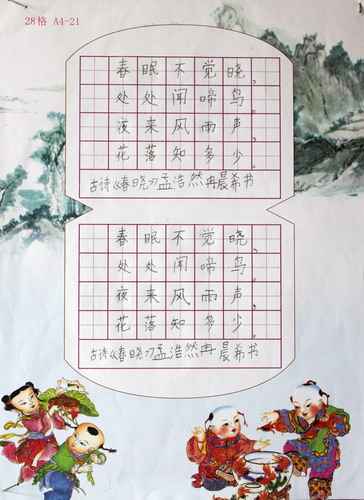 28格 A4-21
春眠不觉晓，
处处闻啼鸟。
夜来风雨声，
花落知多少。
古诗《春晓》孟浩然冉晨希书
春眠不觉晓，
处处闻啼鸟。
夜来风雨声，
花落知多少。
古诗《春晓》孟浩然冉晨希书